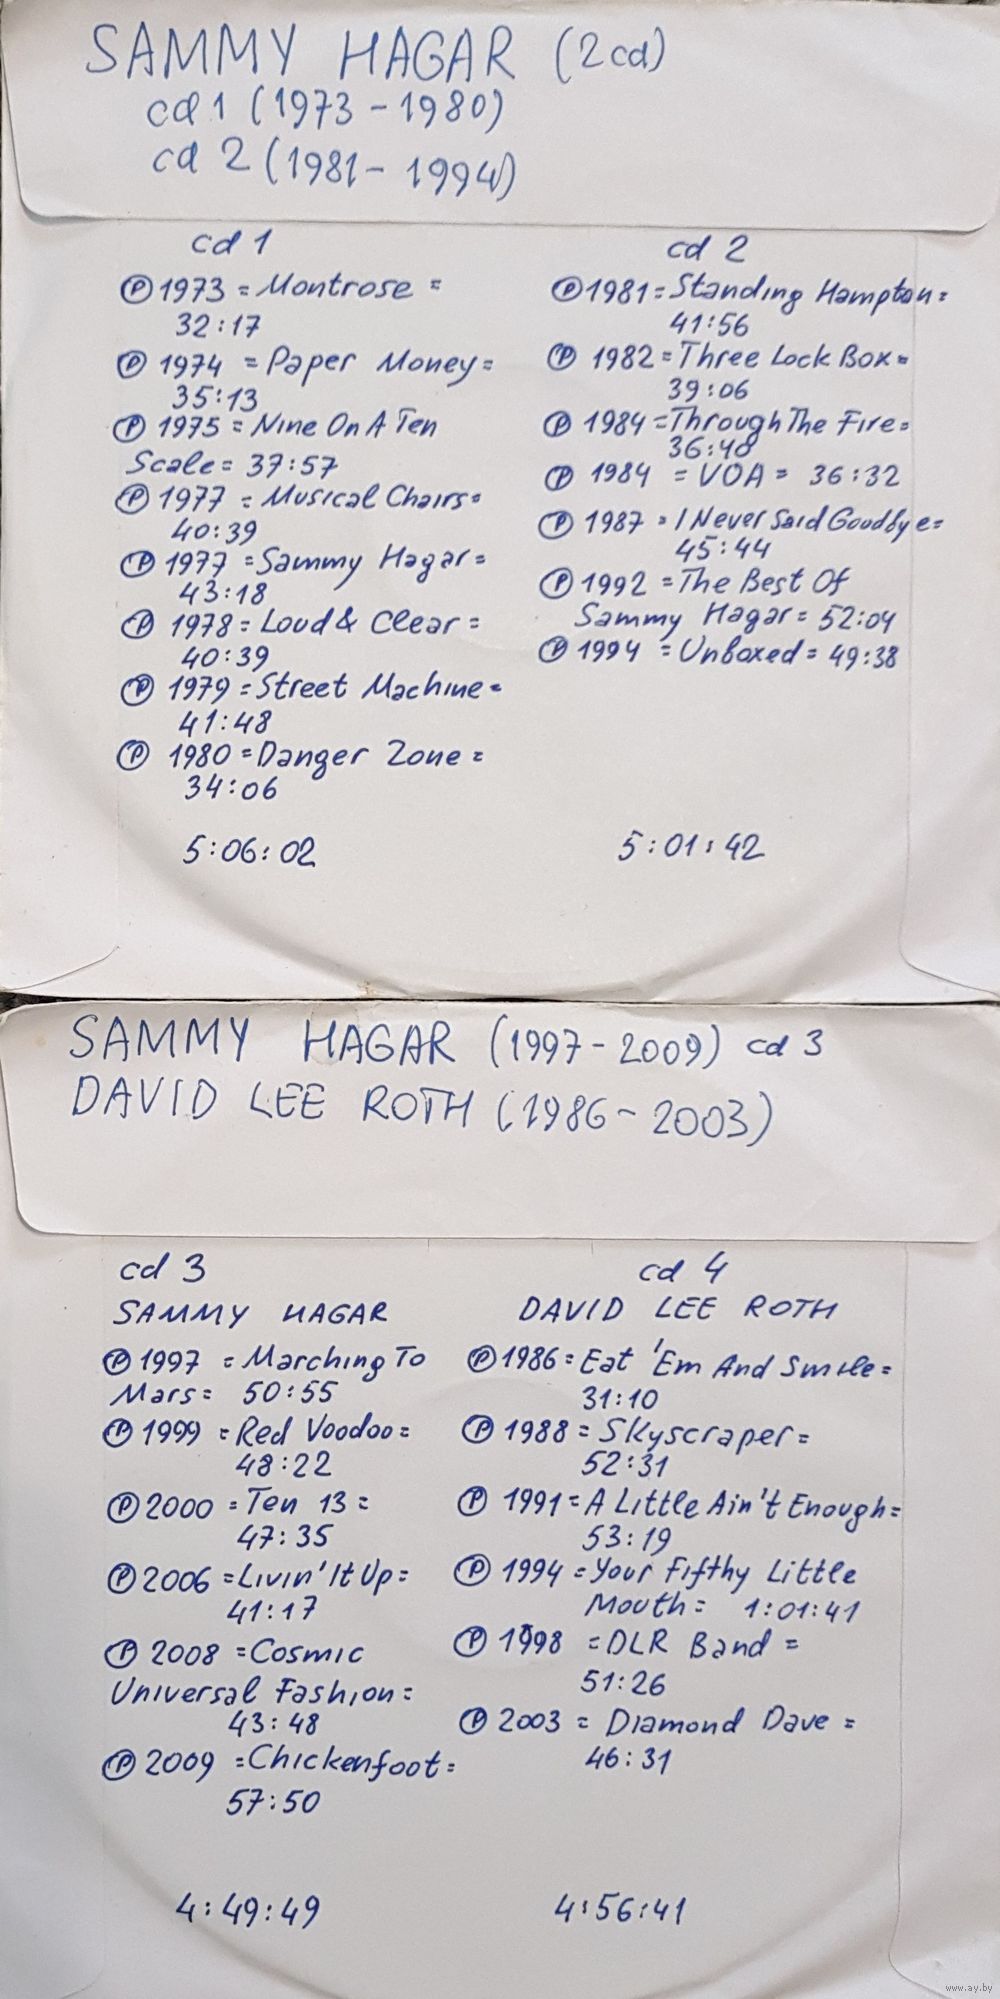 SAMMY HAGAR (2cd)
cd 1 (1973 - 1980)
cd 2 (1981 - 1994)
cd 1
Ⓟ 1973 = Montrose =
32:17
Ⓟ 1974 = Paper Money =
35:13
Ⓟ 1975 = Nine On A Ten
Scale = 37:57
Ⓟ 1977 = Musical Chairs =
40:39
Ⓟ 1977 = Sammy Hagar =
43:18
Ⓟ 1978 = Loud & Clear =
40:39
Ⓟ 1979 = Street Machine =
41:48
Ⓟ 1980 = Danger Zone =
34:06
5:06:02
cd 2
Ⓟ 1981 = Standing Hampton =
41:56
Ⓟ 1982 = Three Lock Box =
39:06
Ⓟ 1984 = Through The Fire =
36:48
Ⓟ 1984 = VOA = 36:32
Ⓟ 1987 = I Never Said Goodbye =
45:44
Ⓟ 1992 = The Best Of
Sammy Hagar = 52:04
Ⓟ 1994 = Unboxed = 49:38
5:01:42
SAMMY HAGAR (1997 - 2009) cd 3
DAVID LEE ROTH (1986 - 2003)
cd 3
SAMMY HAGAR
Ⓟ 1997 = Marching To
Mars = 50:55
Ⓟ 1999 = Red Voodoo =
48:22
Ⓟ 2000 = Ten 13 =
47:35
Ⓟ 2006 = Livin' It Up =
41:17
Ⓟ 2008 = Cosmic
Universal Fashion =
43:48
Ⓟ 2009 = Chickenfoot =
57:50
4:49:49
cd 4
DAVID LEE ROTH
Ⓟ 1986 = Eat 'Em And Smile =
31:10
Ⓟ 1988 = Skyscraper =
52:31
Ⓟ 1991 = A Little Ain't Enough =
53:19
Ⓟ 1994 = Your Fifthy Little
Mouth = 1:01:41
Ⓟ 1998 = DLR Band =
51:26
Ⓟ 2003 = Diamond Dave =
46:31
4:56:41
www.ay.by